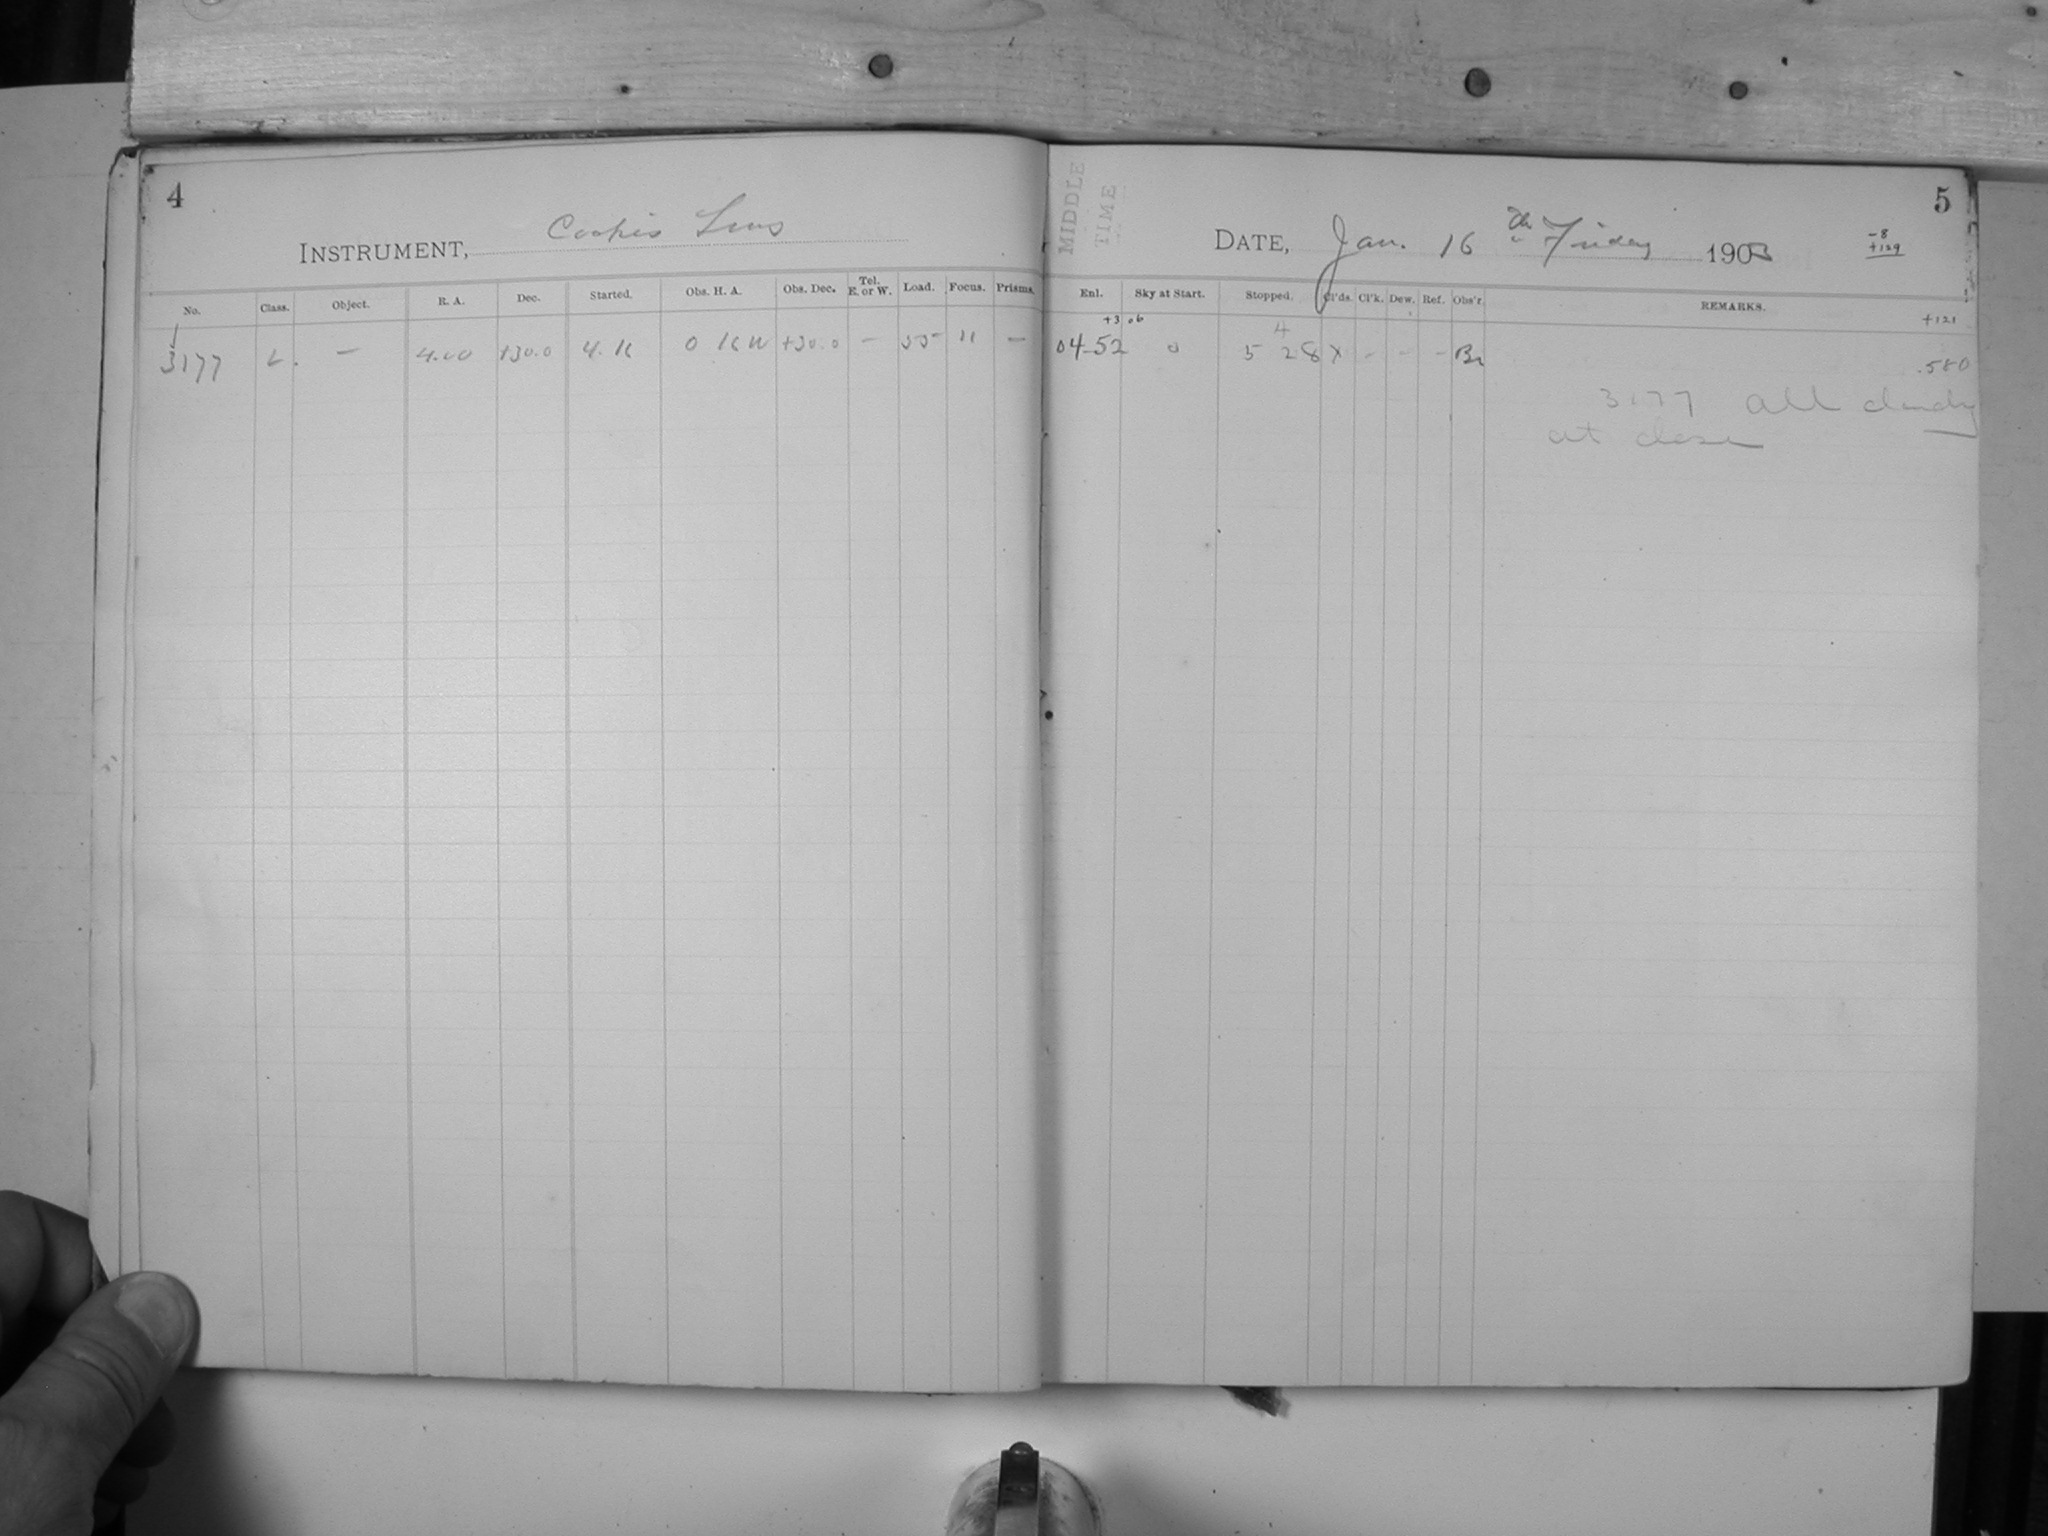 4
INSTRUMENT, Cooke's Lens
No. Class. Object. R. A. Dec. Started. Obs. H. A. Obs. Dec. Tel. E. or W. Load. Focus. Prisms.
3177 L. — 4.00 +30.0 4. 16 0 16 W +30.0 — 55 11 —
5
MIDDLE
TIME
DATE, Jan. 16th Friday 1903
-8
+129
Enl. Sky at Start. Stopped. Cl'ds. Cl'k. Dew. Ref. Obs'r. REMARKS.
+3 06
+121
4
04-52 0 5 28 X - - - Br
.580
3177 all cloudy
at close